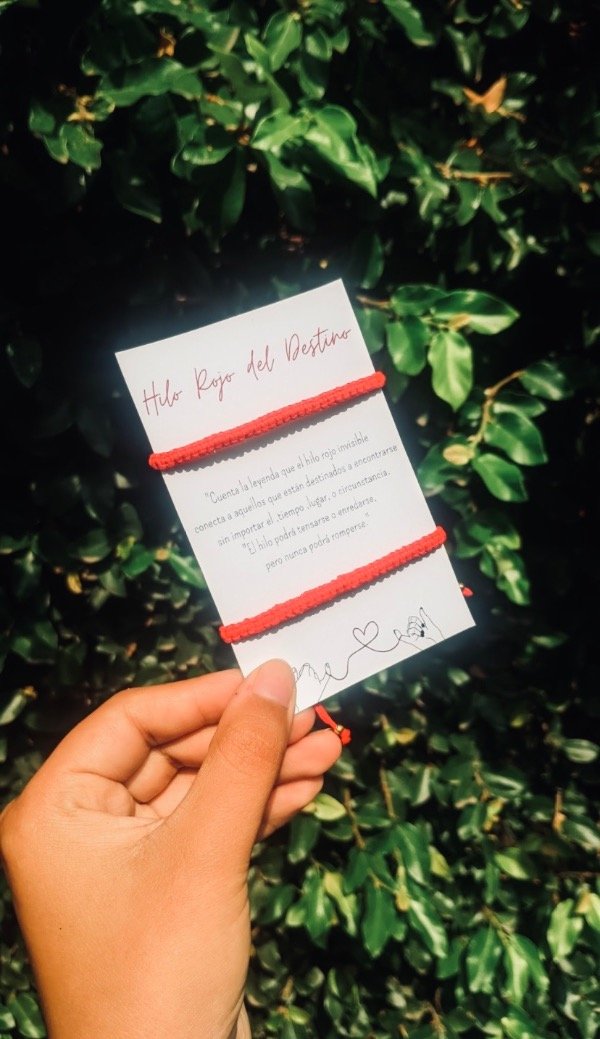 Hilo Rojo del Destino
"Cuenta la leyenda que el hilo rojo invisible
conecta a aquellos que están destinados a encontrarse
sin importar el .tiempo ,lugar, o circunstancia.
"El hilo podrá tensarse o enredarse,
pero nunca podrá romperse."